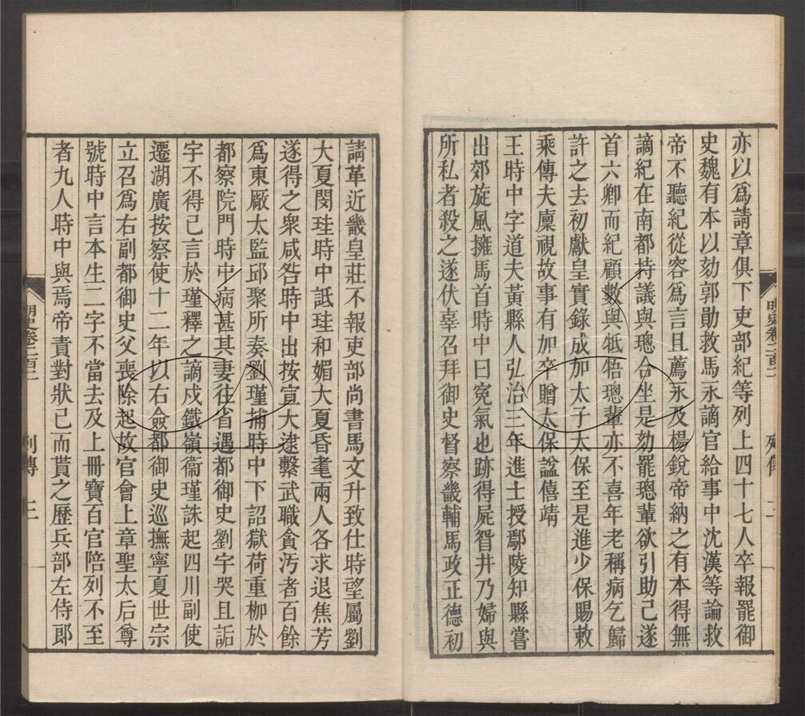 亦以爲請章俱下吏部紀等列上四十七人卒報罷御
史魏有本以劾郭勛救馬永謫官給事中沈漢等論救
帝不聽紀從容爲言且薦永及楊銳帝納之有本得無
謫紀在南都持議與璁合坐是劾罷璁輩欲引助己遂
首六卿而紀顧數與牴牾璁輩亦不喜年老稱病乞歸
許之去初獻皇實錄成加太子太保至是進少保賜敕
乘傳夫廩視故事有加卒贈太保諡僖靖
王時中字道夫黃縣人弘治三年進士授鄢陵知縣嘗
出郊旋風擁馬首時中曰冤氣也跡得屍眢井乃婦與
所私者殺之遂伏辜召拜御史督察畿輔馬政正德初
明史卷二百二 列傳 二
請革近畿皇莊不報吏部尚書馬文升致仕時望屬劉
大夏閔珪時中詆珪和媚大夏昏耄兩人各求退焦芳
遂得之衆咸咎時中出按宣大逮繫武職貪污者百餘
爲東厰太監邱聚所奏劉瑾捕時中下詔獄荷重枷於
都察院門時中病甚其妻往省遇都御史劉宇哭且詬
宇不得已言於瑾釋之謫戍鐵嶺衞瑾誅起四川副使
遷湖廣按察使十二年以右僉都御史巡撫寧夏世宗
立召爲右副都御史父喪除起故官會上章聖太后尊
號時中言本生二字不當去及上冊寶百官陪列不至
者九人時中與焉帝責對狀已而貰之歷兵部左侍郎
明史卷二百二 列傳 三